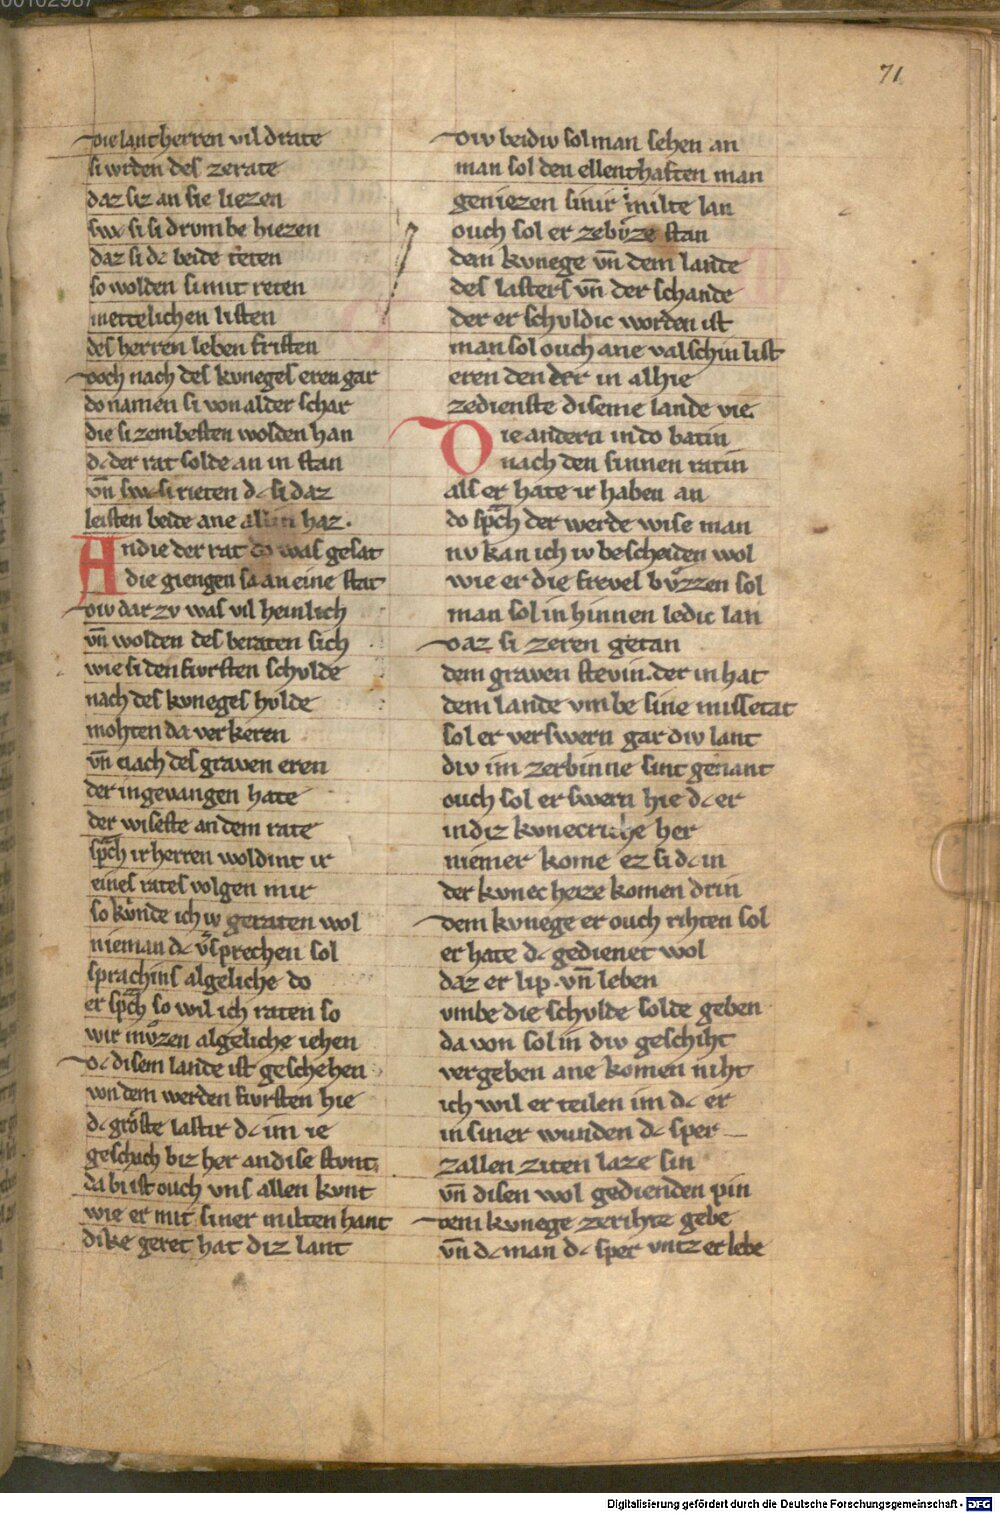 00102987
71
die lantherren vil drate
si wrden des ze rate
daz siz an sie liezen
swc si si drvmbe hiezen
daz si dc beide teten
so wolden si mit reten
mettelichen listen
des herren leben fristen
doch nach des kvneges eren gar
do namen si von al der schar
die si zem besten wolden han
dc der rat solde an in stan
vn̄ swc si rieten dc si daz
leisten beide ane allin haz.
An die der rat do was gesat
die giengen sa an eine stat
div dar zv was vil heinlich
vn̄ wolden des beraten sich
wie si den fvrsten schvlde
nach des kvneges hvlde
mohten da verkeren
vn̄ nach des graven eren
der in gevangen hate
der wiseste an dem rate
sp̄ch ir herren woldint ir
eines rates volgen mir
so kvnde ich iv geraten wol
nieman dc v̄sprechen sol
sprachins algeliche do
er sp̄ch so wil ich raten so
wir mvͦzen algeliche iehen
dc disem lande ist geschehen
von dem werden fvrsten hie
dc gröste lastir dc im ie
geschach biz her an dise stvnt
da bi ist ouch vns allen kvnt
wie er mit siner milten hant
dike geret hat diz lant
div beidiv sol man sehen an
man sol den ellenthaften man
geniezen sinir milte lan
ouch sol er ze bvͦze stan
dem kvnege vn̄ dem lande
des lasters vn̄ der schande
der er schvldic worden ist
man sol ouch ane valschin list
eren den der in alhie
ze dienste diseme lande vie
Die andern in do batin
nach den sinnen ratin
als er hate ir haben an
do sp̄ch der werde wise man
nv kan ich iv bescheiden wol
wie er die frevel bvͦzzen sol
man sol in hinnen ledic lan
daz si zeren getan
dem graven stevin. der in hat
dem lande vmbe sine missetat
sol er verswern gar div lant
div im zerbinne sint genant
ouch sol er swern hie dc er
in diz kvnecriche her
niemer kome ez si dc in
der kvnec heize komen drin
dem kvnege er ouch rihten sol
er hate dc gedienet wol
daz er lip. vn̄ leben
vmbe die schvlde solde geben
da von sol in div geschiht
vergeben ane komen niht
ich wil erteilen im dc er
in siner wunden dc sper
zallen ziten laze sin
vn̄ disen wol gedienden pin
dem kvnege ze rihte gebe
vn̄ dc man dc sper vntz er lebe
Digitalisierung gefördert durch die Deutsche Forschungsgemeinschaft - DFG